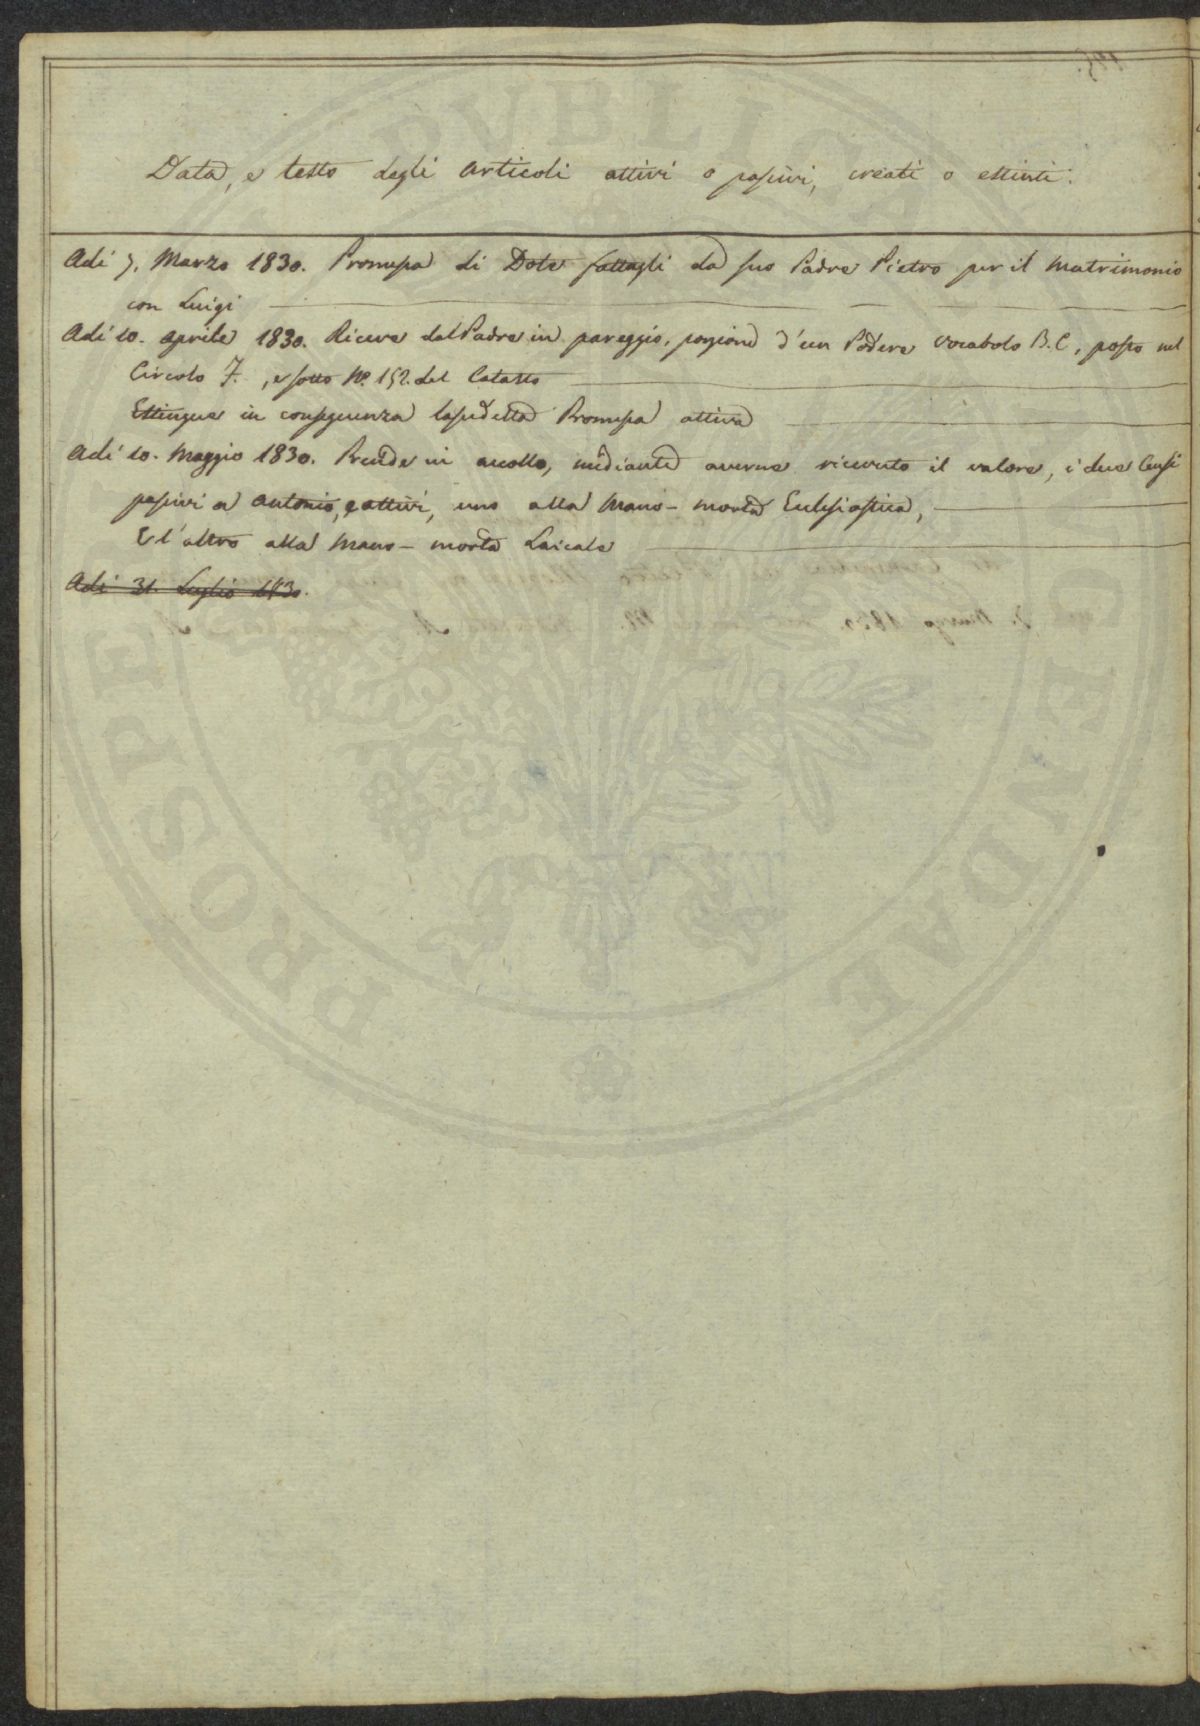 Data, e testo degli articoli attivi o passivi, creati o estinti.
Adi 7. Marzo 1830. Promessa di Dote fattagli da suo Padre Pietro per il Matrimonio
con Luigi
Adi 10. Aprile 1830. Riceve dal Padre in pareggio, porzione d'un Podere vocabolo B.C, posto nel
Circolo F., e sotto No. 152. del Catasto
Estingue in conseguenza la sudetta Promessa attiva
Adi 10. Maggio 1830. Prende in accollo, mediante averne ricevuto il valore, i due Censi
passivi a Antonio, e attivi, uno alla Mano-morta Eclesiastica,
E l'altro alla Mano-morta Laicale
Adi 31. Luglio 1830.
PUBLICAE
PROSPE
ENDAE